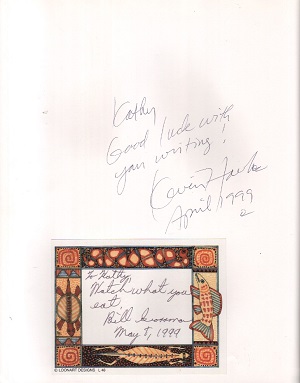 Kathy
Good luck with
your writing!
Kevin
April 1999
To Kathy,
Watch what you
eat,
Bill
May 8, 1999
© LOONART DESIGNS L 46